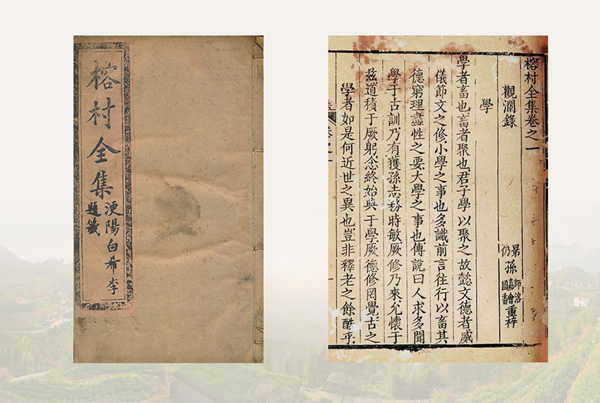 榕村全集
浭陽白希李
題籤
榕村全集卷之一
觀瀾錄
孫
重梓
學
學者畜也畜者聚也君子學以聚之故懿文德者威
儀節文之修小學之事也多識前言往行以畜其
德窮理盡性之要大學之事也傳說曰人求多聞
學于古訓乃有獲孫志務時敏厥修乃來允懷于
茲道積于厥躬念終始典于學厥德修罔覺古之
學者如是何近世之異也豈非釋老之餘酷乎